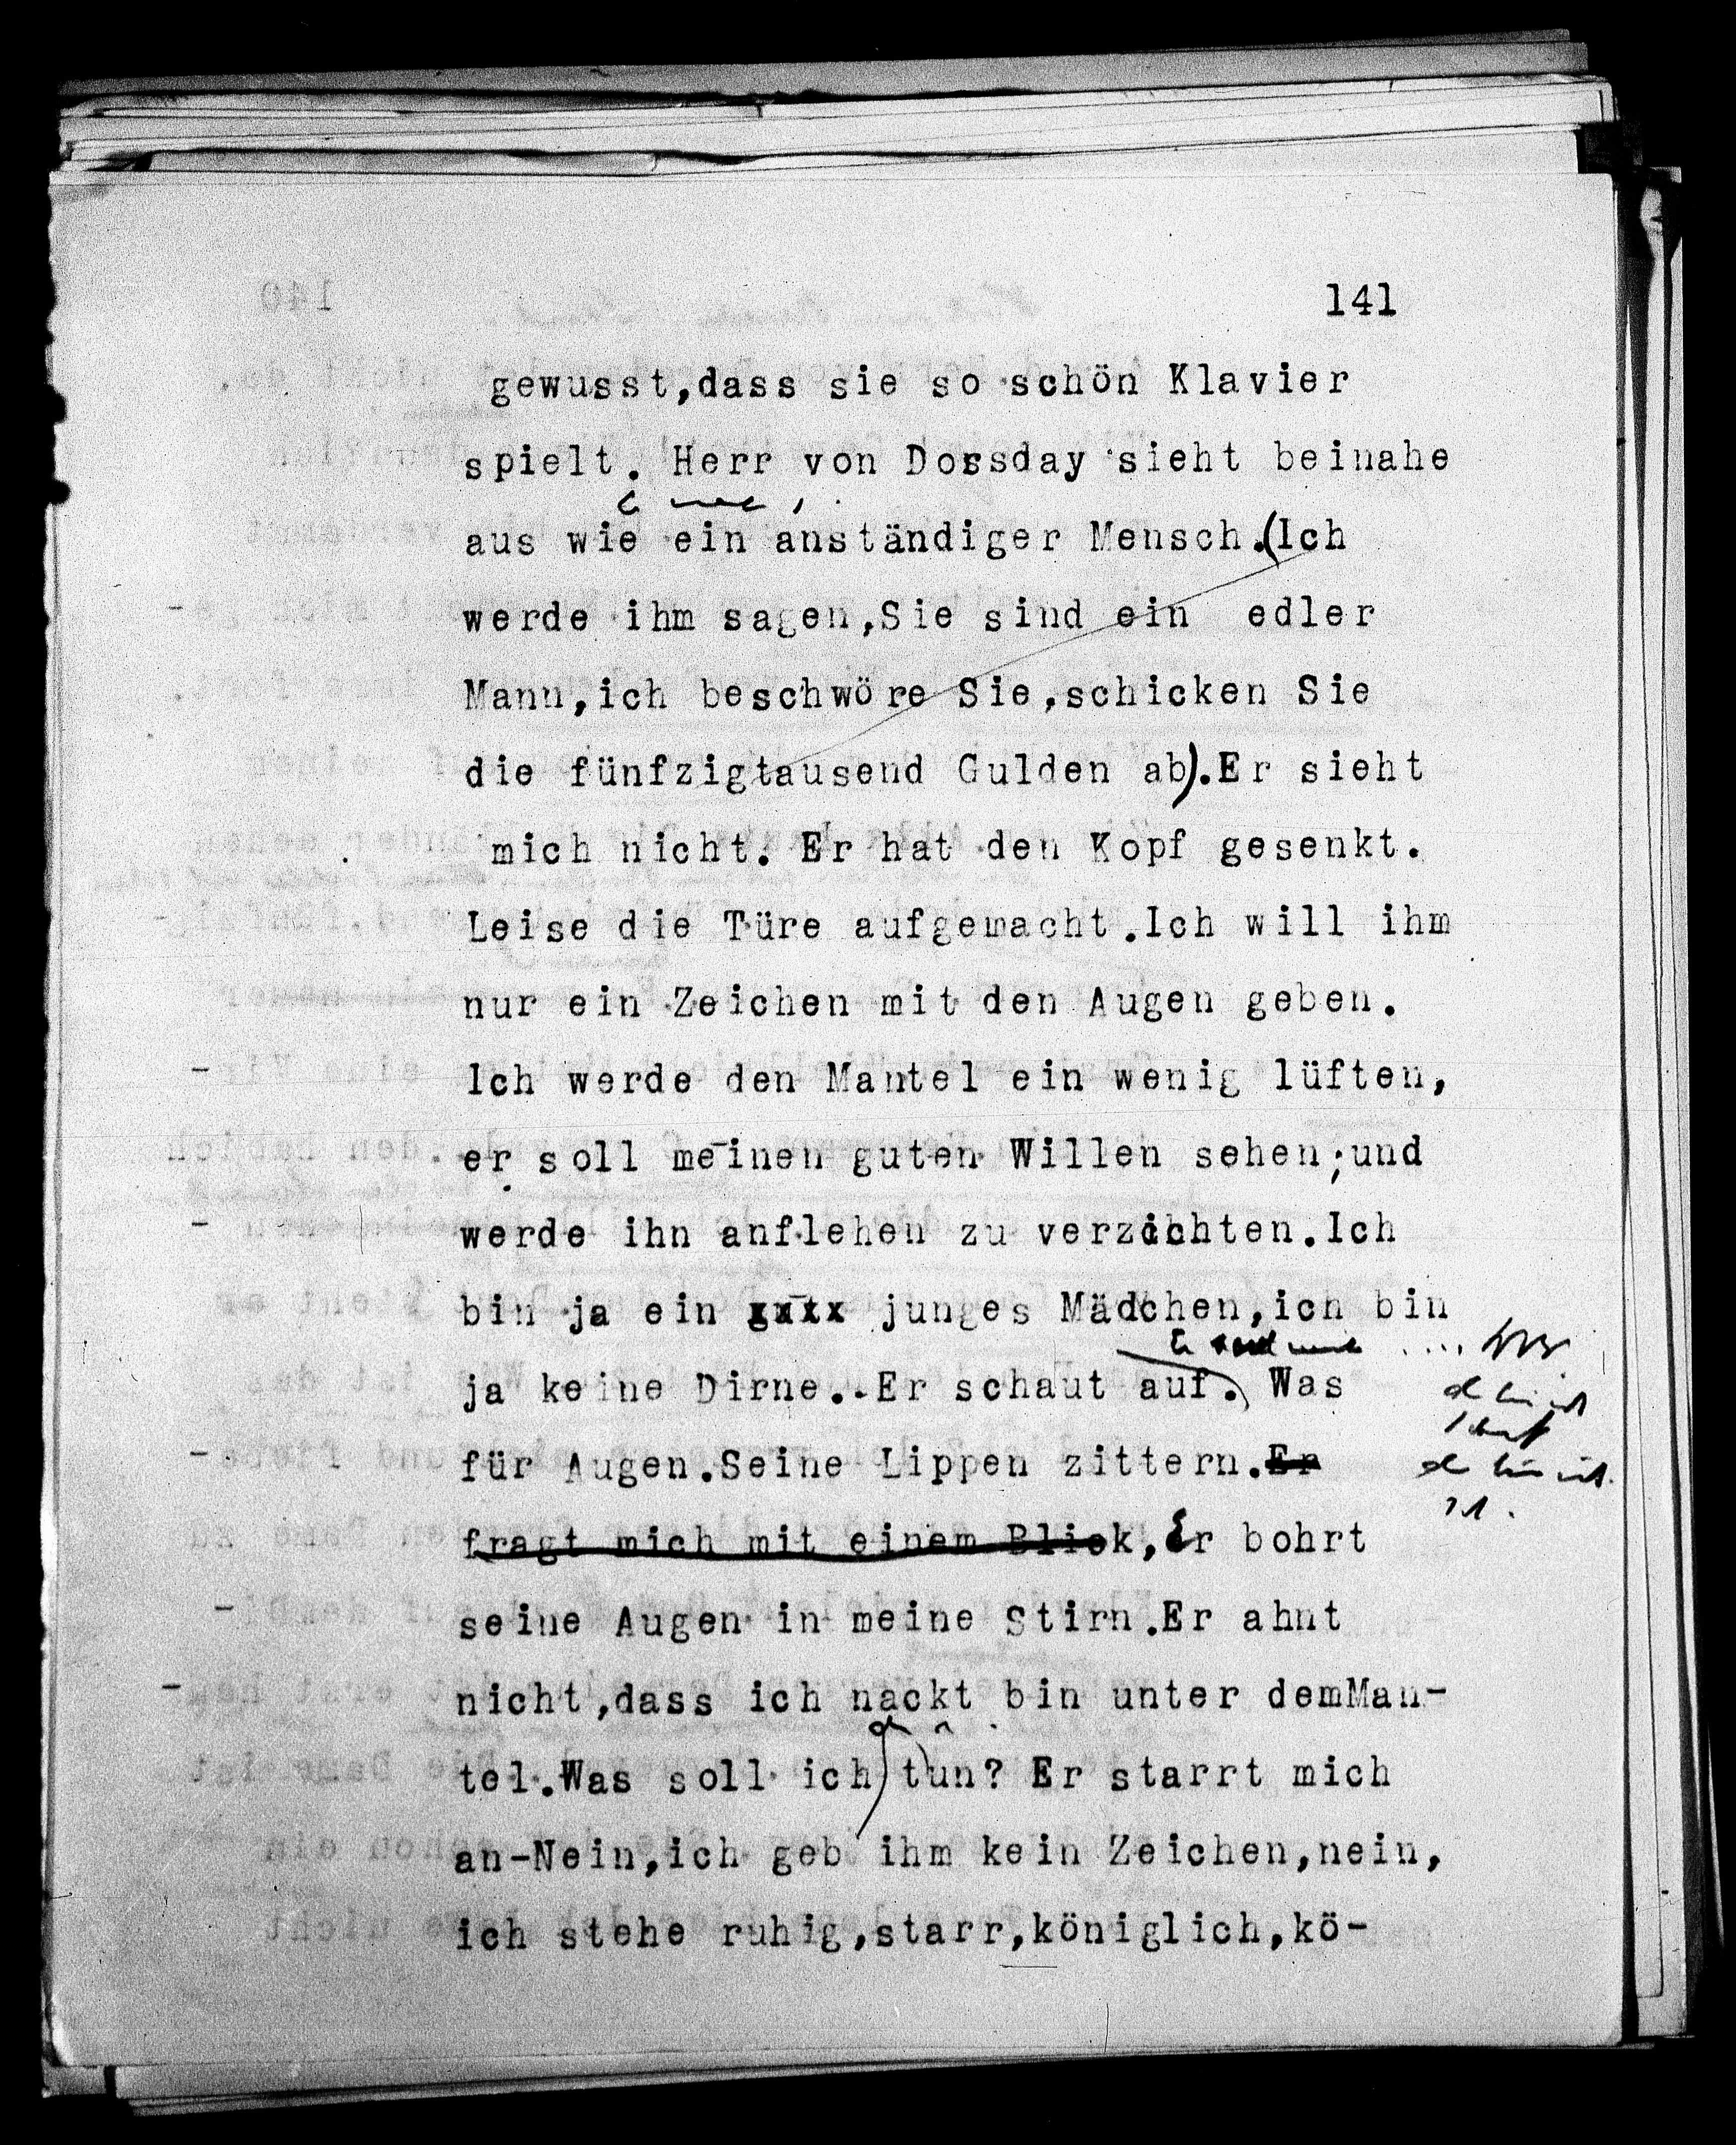 141
gewusst,dass sie so schön Klavier
spielt. Herr von Dorsday sieht beinahe
aus wie ein anständiger Mensch.(Ich
werde ihm sagen,Sie sind ein edler
Mann,ich beschwöre Sie,schicken Sie
die fünfzigtausend Gulden ab).Er sieht
mich nicht. Er hat den Kopf gesenkt.
Leise die Türe aufgemacht.Ich will ihm
nur ein Zeichen mit den Augen geben.
Ich werde den Mantel ein wenig lüften,
er soll meinen guten Willen sehen;und
werde ihn anflehen zu verzichten.Ich
bin ja ein xxxx junges Mädchen,ich bin
ja keine Dirne..Er schaut auf. Was
für Augen.Seine Lippen zittern.Er
fragt mich mit einem Blick,er bohrt
seine Augen in meine Stirn.Er ahnt
nicht,dass ich nackt bin unter demMan-
tel.Was soll ich tun? Er starrt mich
an-Nein,ich geb ihm kein Zeichen,nein,
ich stehe ruhig,starr,königlich,kö-